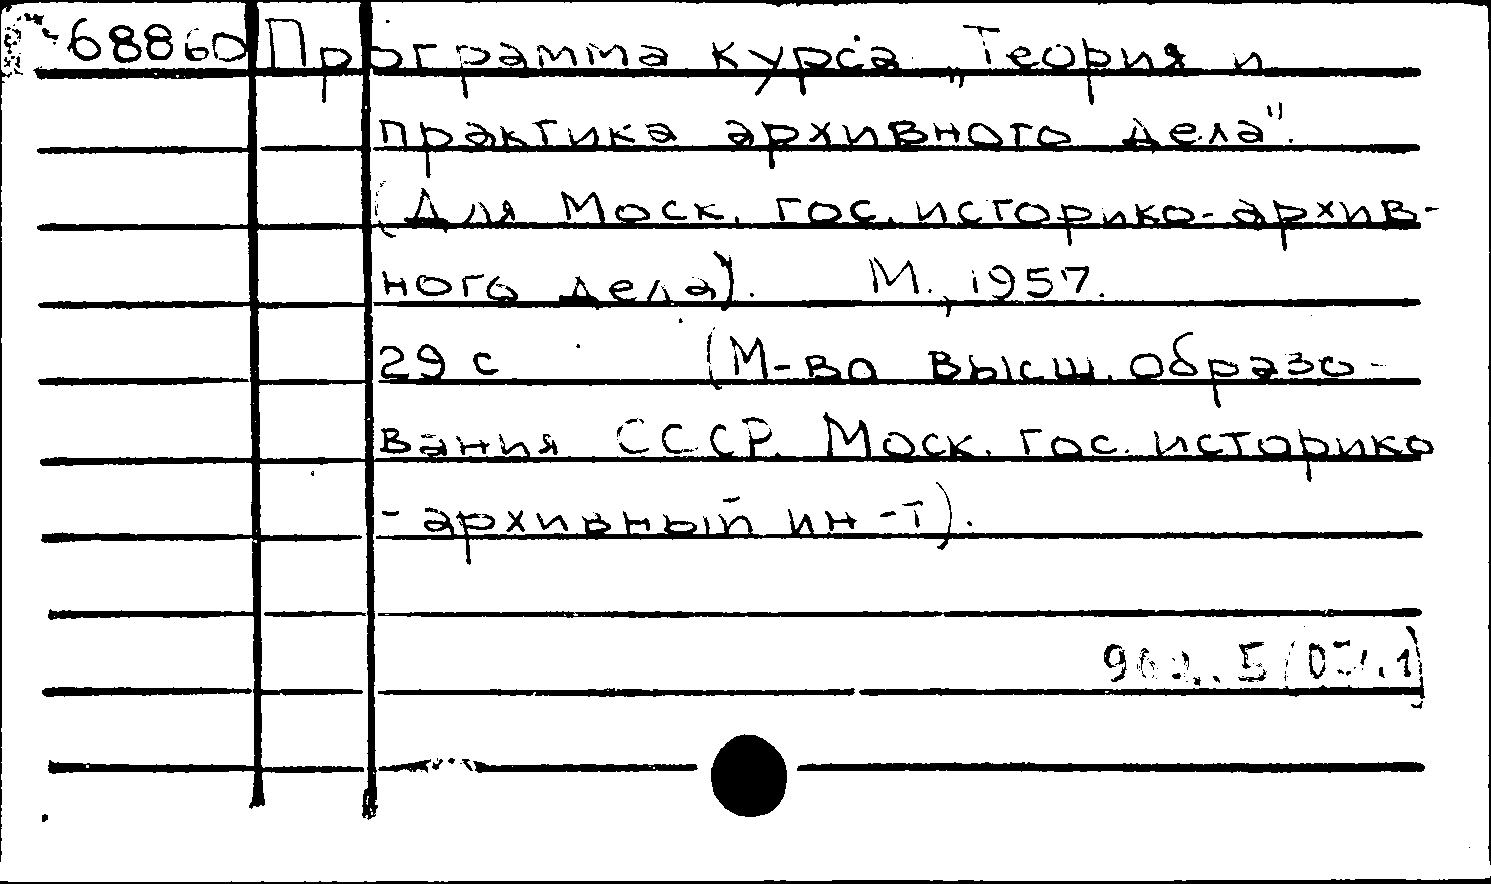 68860 Программа курса „Теория и
практика архивного дела".
(Для Моск. гос. историко-архив-
ного дела). М., 1957.
29 с (М-во высш. образо-
вания СССР. Моск. гос. историко
-архивный ин-т).